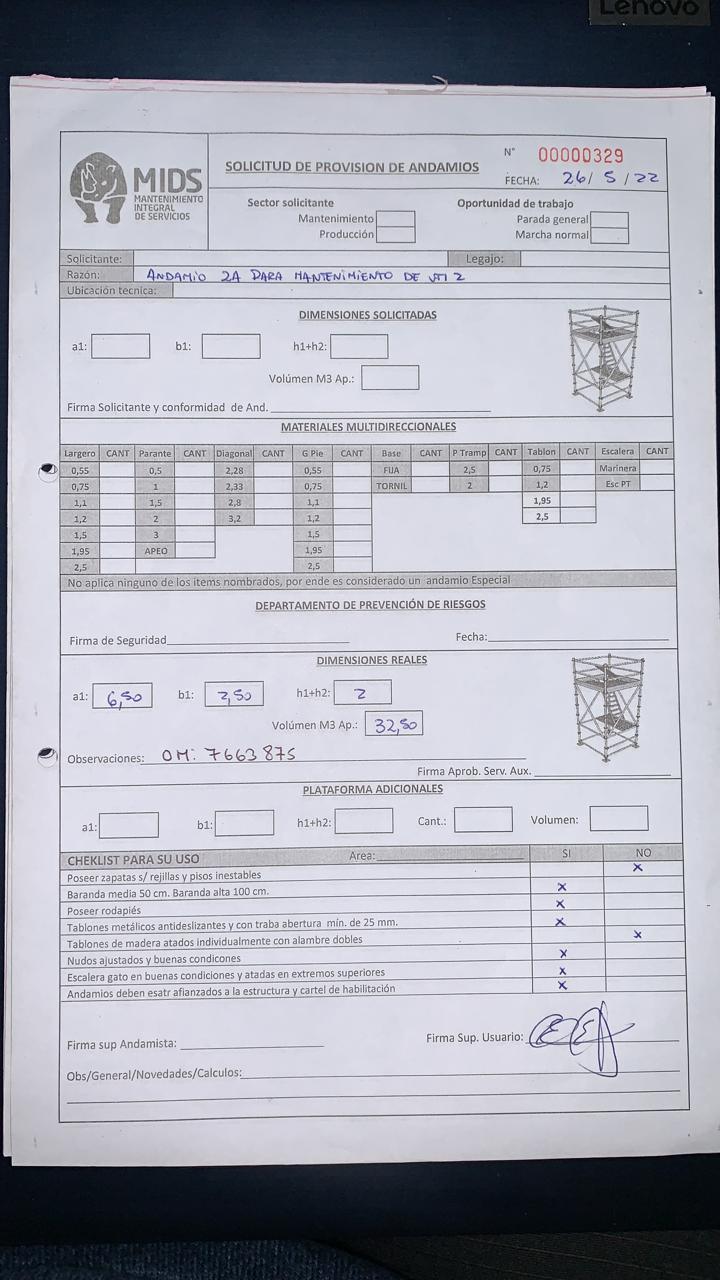 Lenovo
MIDS
MANTENIMIENTO
INTEGRAL
DE SERVICIOS
SOLICITUD DE PROVISION DE ANDAMIOS
N° 00000329
FECHA: 26/ 5 / 22
Sector solicitante
Mantenimiento
Producción
Oportunidad de trabajo
Parada general
Marcha normal
Solicitante: Legajo:
Razón: ANDAMIO 2A PARA MANTENIMIENTO DE VTI 2
Ubicación tecnica:
DIMENSIONES SOLICITADAS
a1: b1: h1+h2:
Volúmen M3 Ap.:
Firma Solicitante y conformidad de And.
MATERIALES MULTIDIRECCIONALES
Largero CANT Parante CANT Diagonal CANT G Pie CANT Base CANT P Tramp CANT Tablon CANT Escalera CANT
0,55 0,5 2,28 0,55 FIJA 2,5 0,75 Marinera
0,75 1 2,33 0,75 TORNIL 2 1,2 Esc PT
1,1 1,5 2,8 1,1 1,95
1,2 2 3,2 1,2 2,5
1,5 3 1,5
1,95 APEO 1,95
2,5 2,5
No aplica ninguno de los items nombrados, por ende es considerado un andamio Especial
DEPARTAMENTO DE PREVENCIÓN DE RIESGOS
Firma de Seguridad Fecha:
DIMENSIONES REALES
a1: 6,50 b1: 2,50 h1+h2: 2
Volúmen M3 Ap.: 32,50
Observaciones: OM: 7663875
Firma Aprob. Serv. Aux.
PLATAFORMA ADICIONALES
a1: b1: h1+h2: Cant.: Volumen:
CHEKLIST PARA SU USO Area: SI NO
Poseer zapatas s/ rejillas y pisos inestables x
Baranda media 50 cm. Baranda alta 100 cm. x
Poseer rodapiés x
Tablones metálicos antideslizantes y con traba abertura mín. de 25 mm. x
Tablones de madera atados individualmente con alambre dobles x
Nudos ajustados y buenas condicones x
Escalera gato en buenas condiciones y atadas en extremos superiores x
Andamios deben esatr afianzados a la estructura y cartel de habilitación x
Firma sup Andamista: Firma Sup. Usuario:
Obs/General/Novedades/Calculos: